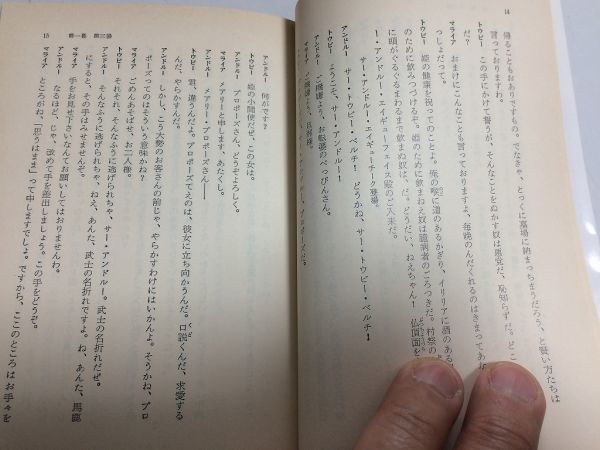 14
帰ることもありですもの。でなきゃ、とっくに墓場に納まっちまうだろう、と賢い方たちは
言っておりますわ。
トウビー この手にかけて誓うが、そんなことをぬかす奴は悪党だ、恥知らずだ。どこ
だ?
マライア おまけにこんなことも言っておりますよ、毎晩のんだくれるのはきまってあ
っしょだって。
トウビー 姪の健康を祝ってのことよ。俺の喉に道のあるかぎり、イリリアに酒のある
のために飲みつづけるぞ。姪のために飲まねえ奴は臆病者のごろつきだ。村祭の
に頭がぐるぐるまわるまで飲まぬ奴は、だ。どうだい、ねえちゃん! 仏頂面を
ー・アンドルー・エイギューフェイス殿のご入来だ。
サー・アンドルー・エイギューチーク登場。
アンドルー サー・トウビー・ベルチ! どうかね、サー・トウビー・ベルチ!
トウビー ようこそ、サー・アンドルー!
アンドルー ご機嫌よう、お転婆のべっぴんさん。
マライア ご機嫌よう、旦那様。
プロポーズだ。
第三場 第一幕 15
アンドルー 何がです?
トウビー 姪の小間使だぜ、この女は。
アンドルー プロポーズさん、どうぞよろしく。
マライア メアリーと申します、あたくし。
アンドルー メアリー・プロポーズさん——
トウビー 君、違うんだよ。プロポーズてえのは、彼女に立ち向かうんだ。口説くんだ、求愛する
んだ、やらかすんだ。
アンドルー しかし、こう大勢のお客さんの前じゃ、やらかすわけにはいかんよ。そうかね、プロ
ポーズってのはそういう意味かね?
マライア ごめんあそばせ、お二人様。
トウビー それそれ、そんなふうに逃げられちゃ、サー・アンドルー。武士の名折れだぜ。
アンドルー そんなふうに逃げられちゃ、ねえ、あんた、武士の名折れですよ。ね、あんた、馬鹿
にすると、その手はみせませんぞ。
マライア 手をお見せ下さいなんてお願いしてはおりませんわ。
アンドルー なるほど、じゃ、改めて手を差出しましょう。この手をどうぞ。
マライア ところがね、「思うはまま」って申しますでしょ。ですから、ここのところはお手々を